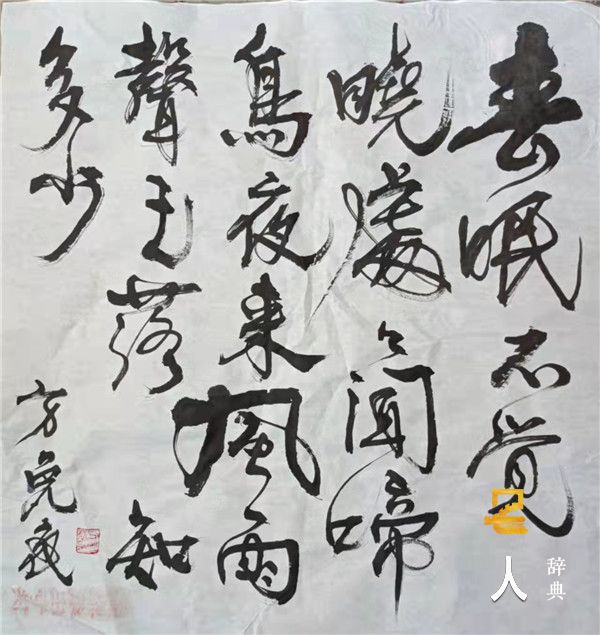 春眠不覺
曉處々聞啼
鳥夜来風雨
聲花落知
多少
方
人
辞典